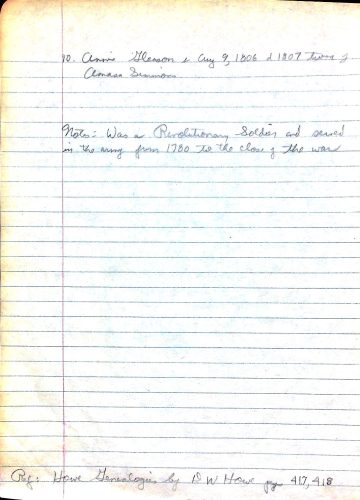 10. Annis Gleason b Aug 9, 1806 d 1807 twin of
Amasa Simmons
Note: Was a Revolutionary Soldier and served
in the army from 1780 to the close of the war
Ref: Howe Genealogies by D W Howe page 417, 418